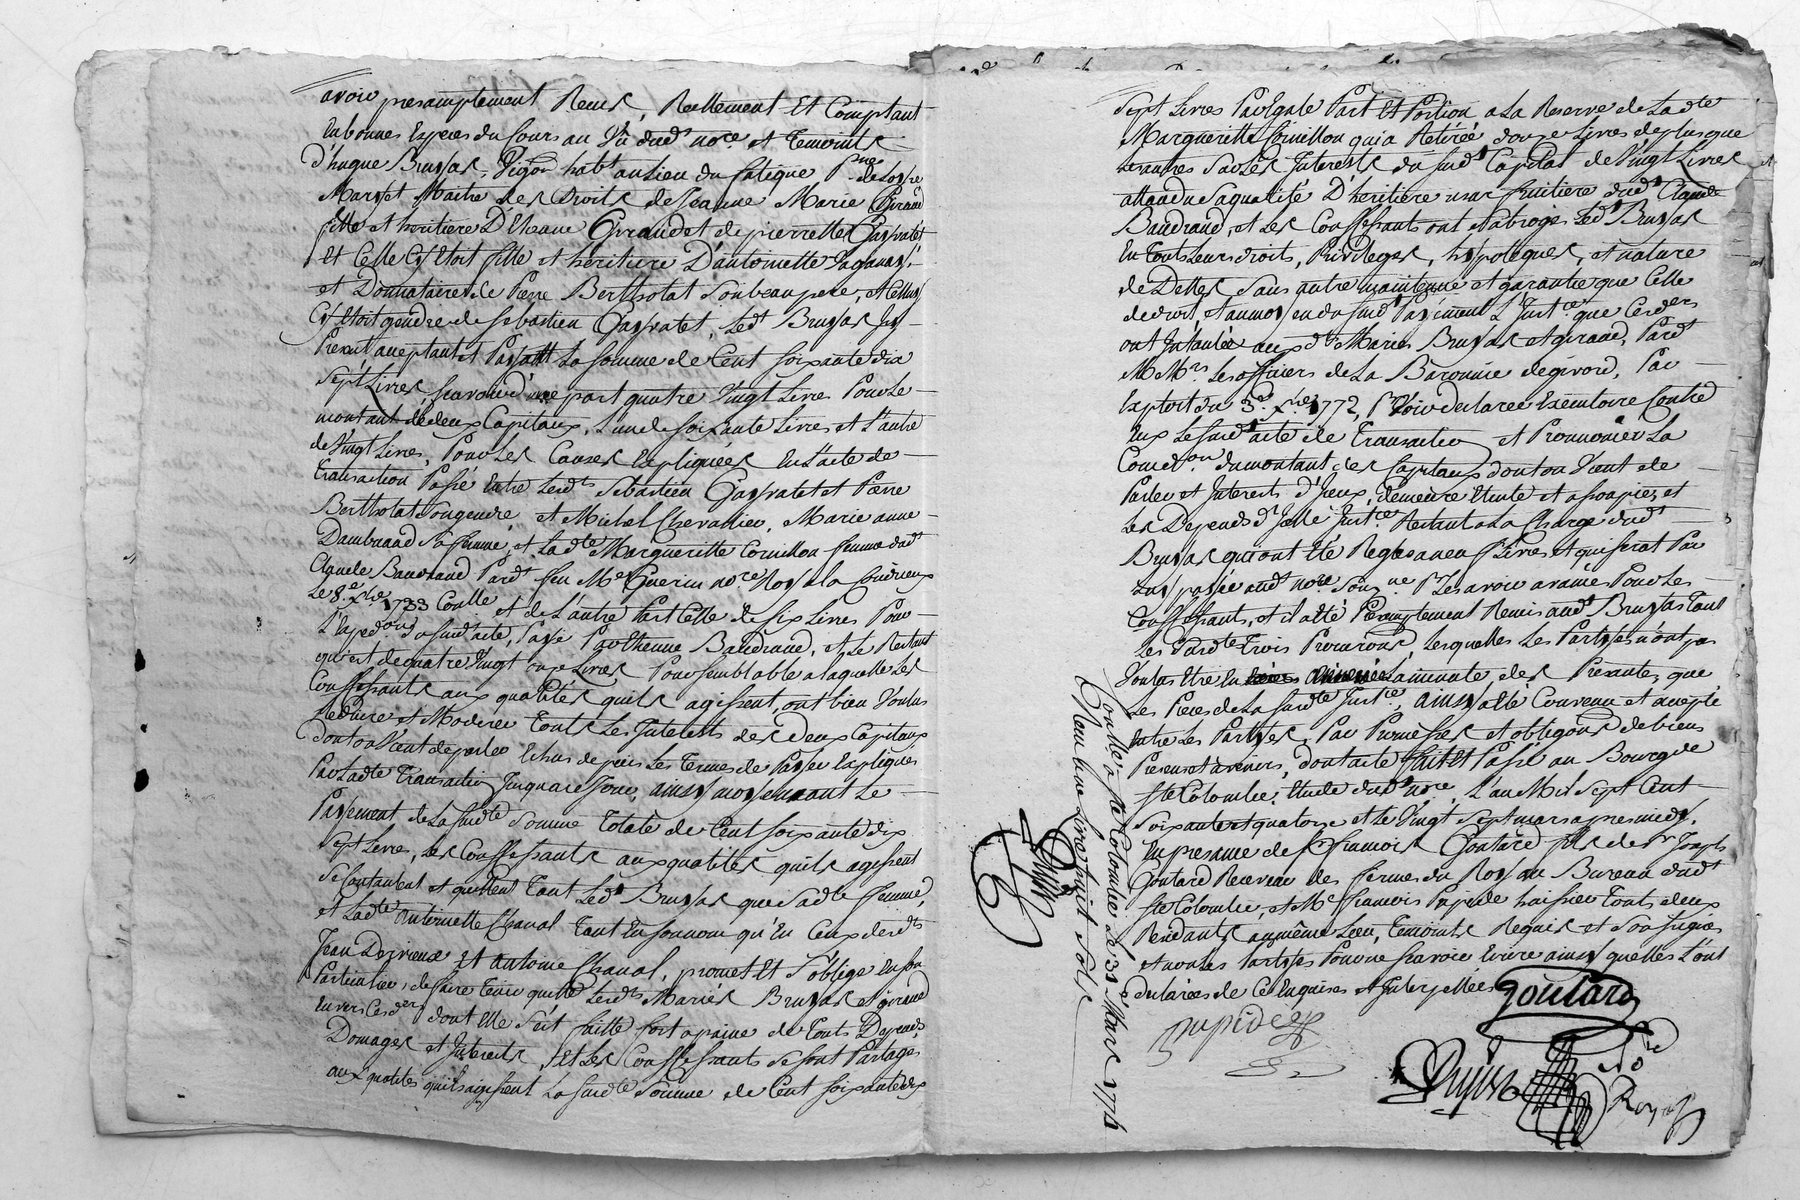 avoir presamptement Reçus, Reellement Et Comptant
En bonnes Especes du Cours au Vû dud.t no.re et Temoints
d'hugue Bruyas, Vigon hab.t au Lieu du
Mary et Maitre des Droits de Jeanne Marie Giraud
fille et heritiere D'Etienne Giraud et de pierrette Gayvatet
Et Celle Cy Etoit fille et heritiere D'antoinette
et Donnataire de Pierre Bertholat Son beau pere, et Celluy
Cy Etoit gendre de Sebastien Gayvatet, Led.t Bruyas Jcy
Present, aceptant et Payant La somme de Cent soixante dix
Sept Livres, scavoir d'une part quatre Vingt Livres Pour Le
montant de deux Capitaux, L'un de soixante Livres et L'autre
de Vingt Livres, Pour Les Causes Expliquées En L'acte de
Transaction Passé Entre Lesd.ts Sebastien Gayvatet et Pierre
Bertholat son gendre, et Michel Chevallier, Marie anne
Dambuand Sa femme, et Lad.te Margueritte Cornillon femme dud.t
Claude Baudrand Pard.t feu M.e Guerin no.re Royal a Condrieux
Le 8.e x.bre 1733 Conllé et de L'autre Part Celle de six Livres Pour
L'Exped.on du susd.t acte, Payé Par Etienne Baudrand, et Le Restant
qui est de quatre Vingt onze Livres Pour semblable a laquelle Les
Confessants aux qualités quils agissent, ont bien Voulus
Reduire et Moderer Touts Les Interests des deux Capitaux
dont on Vient de parler Echus depuis Les Termes de Payer Expliqués
Par Lad.te Transaction Jusqua ce Jour, ainsy moyennant Le
Payement de La susd.te Somme Totale de Cent soixante dix
Sept Livres, Les Confessants aux qualités quils agissent
Se Contantent et quittent Tant Led.t Bruyas que Sad.te femme,
et Lad.te Antoinette Chaval Tant En son nom qu'En Ceux desd.ts
Jean Dervieux Et Antoine Chaval, promet Et S'oblige En son
Particulier, de faire Tenir quitte Lesd.ts Mariés Bruyas et giraud
Envers Ces d.ers dont Elle S'est faitte fort a paine de Touts Depends,
Domages et Interests, Et Les Confessants Se sont Partagés
aux qualités quils agissent La susd.te Somme de Cent soixante dix
Sept Livres Par Egale Part Et Portion a La Reserve de Lad.te
Margueritte Cornillon qui a Retirée douze Livres de plus que
Les autres Sur Les Interests du sud.t Capital de Vingt Livres
attandu Sa qualité D'heritiere usufruitiere dud.t Claude
Baudrand, et Les Confessants ont Subrogé Led.t Bruyas
En Touts Leurs droits, Privileges, hipoteques, et nature
de Dettes Sans autre maintenue et garantie que Celle
de droit, et au moyen du susd.t Payement L'Inst.ce que Ces d.ers
ont Intantée aux d.ts Mariés Bruyas et giraud, Pard.t
M M.rs Les officiers de La Baronnie de givord, Par
Exploit du 3.e x.bre 1772, P.r Voir declarer Executoire Contre
Eux Le susd.t acte de Transaction et Prononcer La
Comd.on du montant des Capitaux dont on Vient de
Parler et Interests d'Jceux, demeure Eteinte et assoupie, et
Les Depends de Jcelle Inst.ce Restant a La Charge dud.t
Bruyas qui ont Eté Reglés a neuf Livres et qui serat Par
Luy payée aud.t no.re Soug.né P.r Les avoir avancés Pour Les
Confessants, et il a Eté Presentement Remis aud.t Bruyas Tant
Les Susd.tes Trois Procuraons, Lesquelles Les Parties n'ont pas
Voulus Etre En La minute des Presentes, que
Les Pieces de La susd.te Inst.ce, ainsy a Eté Convenu et accepté
Entre Les Parties, Par Promesses et obligons de biens
Presents et avenirs, dont acte Fait Et Passé au Bourg de
Ste Colombe, Etude dud.t no.re, L'an Mil Sept Cent
Soixante et quatorze et Le Vingt Sept mars apres midy,
En presence de S.r francois Goutard fils de S.r Joseph
Goutard Receveur des fermes du Roy au Bureau dud.t
Ste Colombe, et M.e francois Pupide huissier Touts deux
Rendants au même Lieu, Temoints Requis et Soussignés
et non Les Parties Pour ne scavoir Ecrire ainsy quelles L'ont
declarées de Ce Enquises et Interpellées
Goutard
Pupide
no.re
Royal
Conllé a Ste Colombe Le 31 Mars 1774
Reçu une Livre huit Sols